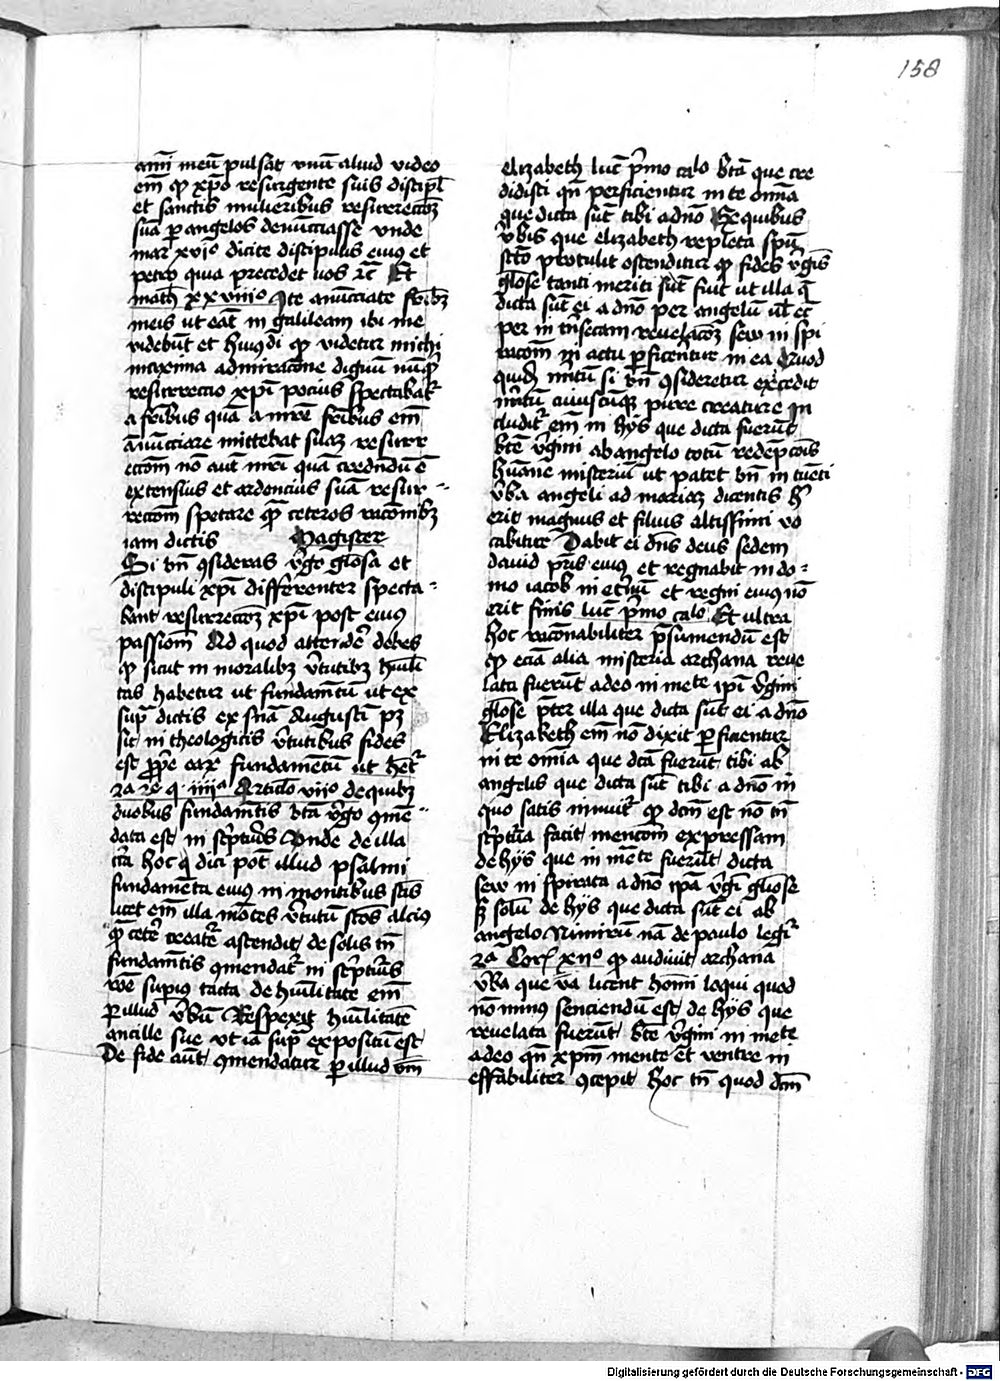 158
anim meū pulsat vnū aliud video
em̄ qꝫ xpō resurgente suis discipl̄
et sanctis mulieribus resurreccōꝫ
suā ꝑ angelos denūcciasse vnde
mar xvjº dicite discipulis eiꝰ et
petro quia precedet uos ⁊c̄ Et
math xxviijº Ite anūcciate frībꝫ
meis ut eāt in galileam ibi me
videbūt et hiꝰmōi qꝫ videtur michi
maxima admiracōne dignū nūqͥd
resurreccio xpī pocius spectabat
a frībus quā a mrē frībus em̄
anūcciare mittebat suaꝫ resurr
eccōm nō aut mrēi quā credendū ē
extensius et ardencius suā resur
reccōm spetare qͣꝫ ceteros racōnibꝫ
iam dictis Magister
Si bn̄ ꝯsideras v̓go gl̄osa et
discipuli xpī differenter specta
bant resurreccōꝫ xpī post eiꝰ
passiom̄ Ad quod attendē debes
qꝫ sicut in moralibꝫ v̓tutibꝫ hūili
tas habetur ut fundam̄tū ut ex
sup̄ dictis ex sn̄ia Augustī pꝫ
sic in theologicis v̓tutibus fides
est ꝓp̄e eaꝝ fundamētū ut het̄r
2a 2e q iiijª Articlo vijº de quibꝫ
duobus fundamētis btā v̓go ꝯmē
data est in sc̓pturis Vnde de illa
cͥca hoc q̄ dici pot̄ illud psalmi
fundamēta eiꝰ in montibus scīs
licet em̄ illa mōtes v̓tutū scōs alciꝰ
qͣꝫ cete creatͬe ascendit de solis tn̄
fundamētis ꝯmendatr̄ in sc̓pturis
vn̄ supiꝰ tacta de hūilitate em̄
ꝑ illud v̓bū Respexit hūilitatē
ancille sue vt iā sup̄ expositū est
De fide aūt ꝯmendatur ꝑ illud vm̄
elizabeth luc̄ pͥmo calo btā que cre
didisti qn̄ perficientur in te om̄ia
que dicta sūt tibi a dnō Ex quibus
v̓bis que elizabeth repleta spū
scto protulit ostenditur qꝫ fides v̓gis
gl̄ose tanti meriti sūt fuit ut illa q̄
dicta sūt ei a dnō per angelū ul̄ ec̄
per intrisecam reuelacōꝫ seu inspi
racōm in actu ꝑficerentur in ea Quod
quidē mͥtū si bn̄ ꝯsideretur excedit
mͥtū cuiuscūqꝫ pure creature In
cludit̄ em̄ in hijs que dicta fuerūt
btē v̓gini ab angelo totū redēpcōis
hūane misteriū ut patet bn̄ intuēti
v̓ba angeli ad mariaꝫ dicentis hͥ
erit magnus et filius altissimi vo
cabitur Dabit ei dn̄s deus sedem
dauid prīs eiꝰ et regnabit in do
mo iacob in et̓nū et regni eiꝰ nō
erit finis luc̄ pͥmo calo Et ultra
hoc racōnabiliter p̄sumendū est
qꝫ eciā alia misteria archana reue
lata fuerūt adeo in mēte ipī v̓gini
gl̄ose p̄ter illa que dicta sūt ei a dnō
Elizabeth em̄ nō dixit ꝑficientur
in te om̄ia que dcā fuerūt tibi ab
angelis que dicta sūt tibi a dnō in
quo satis innuit̄ qꝫ dcm̄ est nō tn̄
sc̓ptura facit mencōm expressam
de hijs que in mēte fuerūt dicta
seu inspirata a dnō ipā v̓gi gl̄ose
sꝫ solū de hijs que dicta sūt ei ab
angelo Nimirū nā de paulo legit̄r
2ª Cor xijº qꝫ audiuit archana
v̓ba que nō licent homī loqui quod
nō minꝰ senciendū est de hijs que
reuelata fuerūt bte v̓gini in mēte
adeo qn̄ xpm̄ mente et ventre in
effabiliter ꝯcepit Hoc tn̄ quod dcm̄
Digitalisierung gefördert durch die Deutsche Forschungsgemeinschaft - DFG